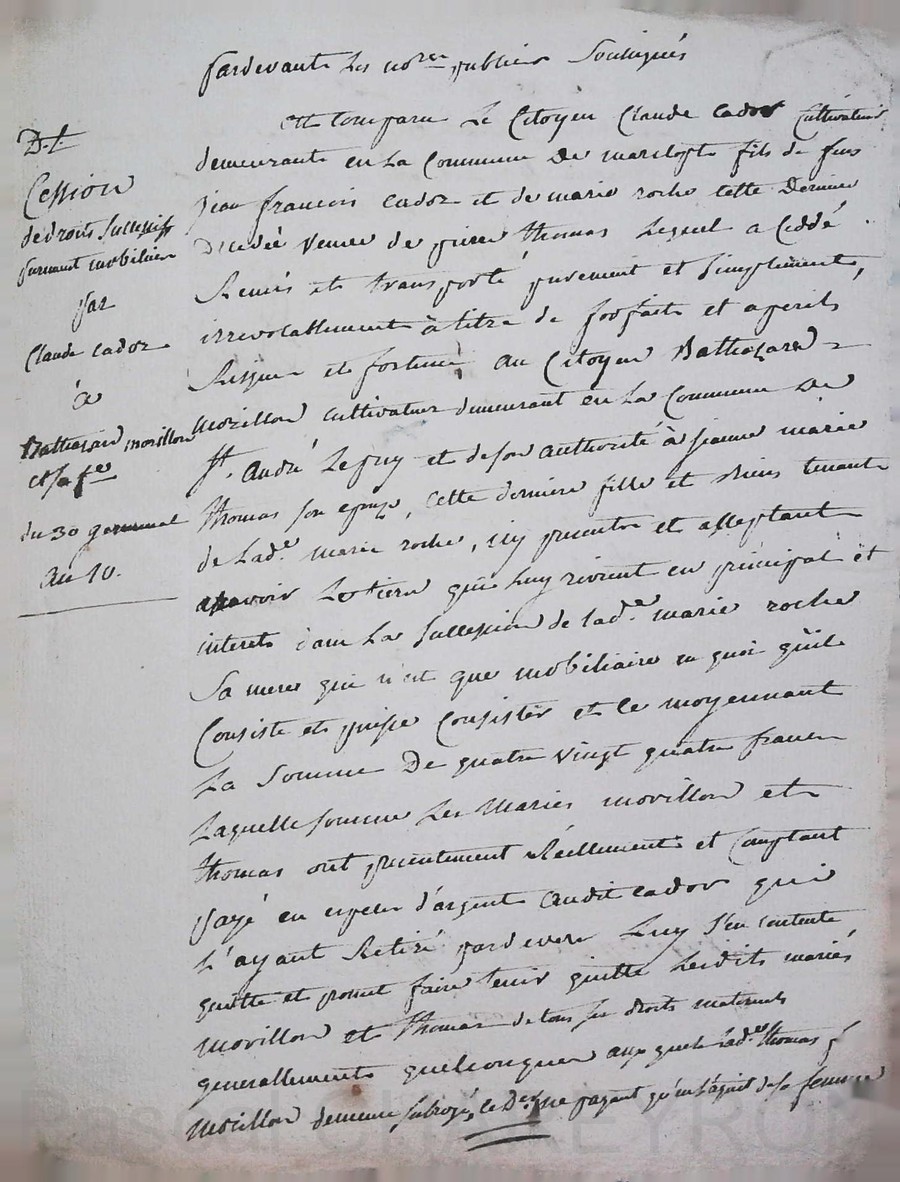 pardevants Les no.res publics Soussignés
est Comparu Le Citoyen Claude cador Cultivateur
demeurante en La Commune De marclopt fils de feus
jean francois cador et de marie roche cette Derniere
Decedée veuve de pierre thomas Lequel a Ceddé
Remis et transporté purement et simplement,
irrevocablement à titre de forfait et a perils
Risque et fortune, au Citoyen Balthazard
morillon cultivateur demeurant en La Commune De
St. André Lepuy et de son authorité à jeanne marie
thomas son epouze, cette derniere fille et Biens tenante
de Lad.e marie roche, icy presente et acceptant
assavoir Le tiers qui luy revient en principal et
interets dans La Succession de lad.e marie roche
Sa mere qui n'est que mobiliaire en quoi qu'il
Consiste et puisse Consister et ce moyennant
La Somme De quatre vingt quatre francs
Laquelle somme Les Mariés morillon et
thomas ont presentement Réellement et Comptant
payé en especes d'argent audit cador qui
L'ayant Retiré pardevers Luy s'en contente
quitte et promet faire tenir quitte Lesdits mariés
morillon et thomas de tous ses droits maternels
generallements quelconques aux quels lad.e thomas
morillon demeure subrogé, ne payant qu'en l'acquit de sa femme
D.t
Cession
de droits Successifs
purement mobiliers
par
Claude cador
à
Balthazard morillon
et sa fe
du 30 germinal
an 10.